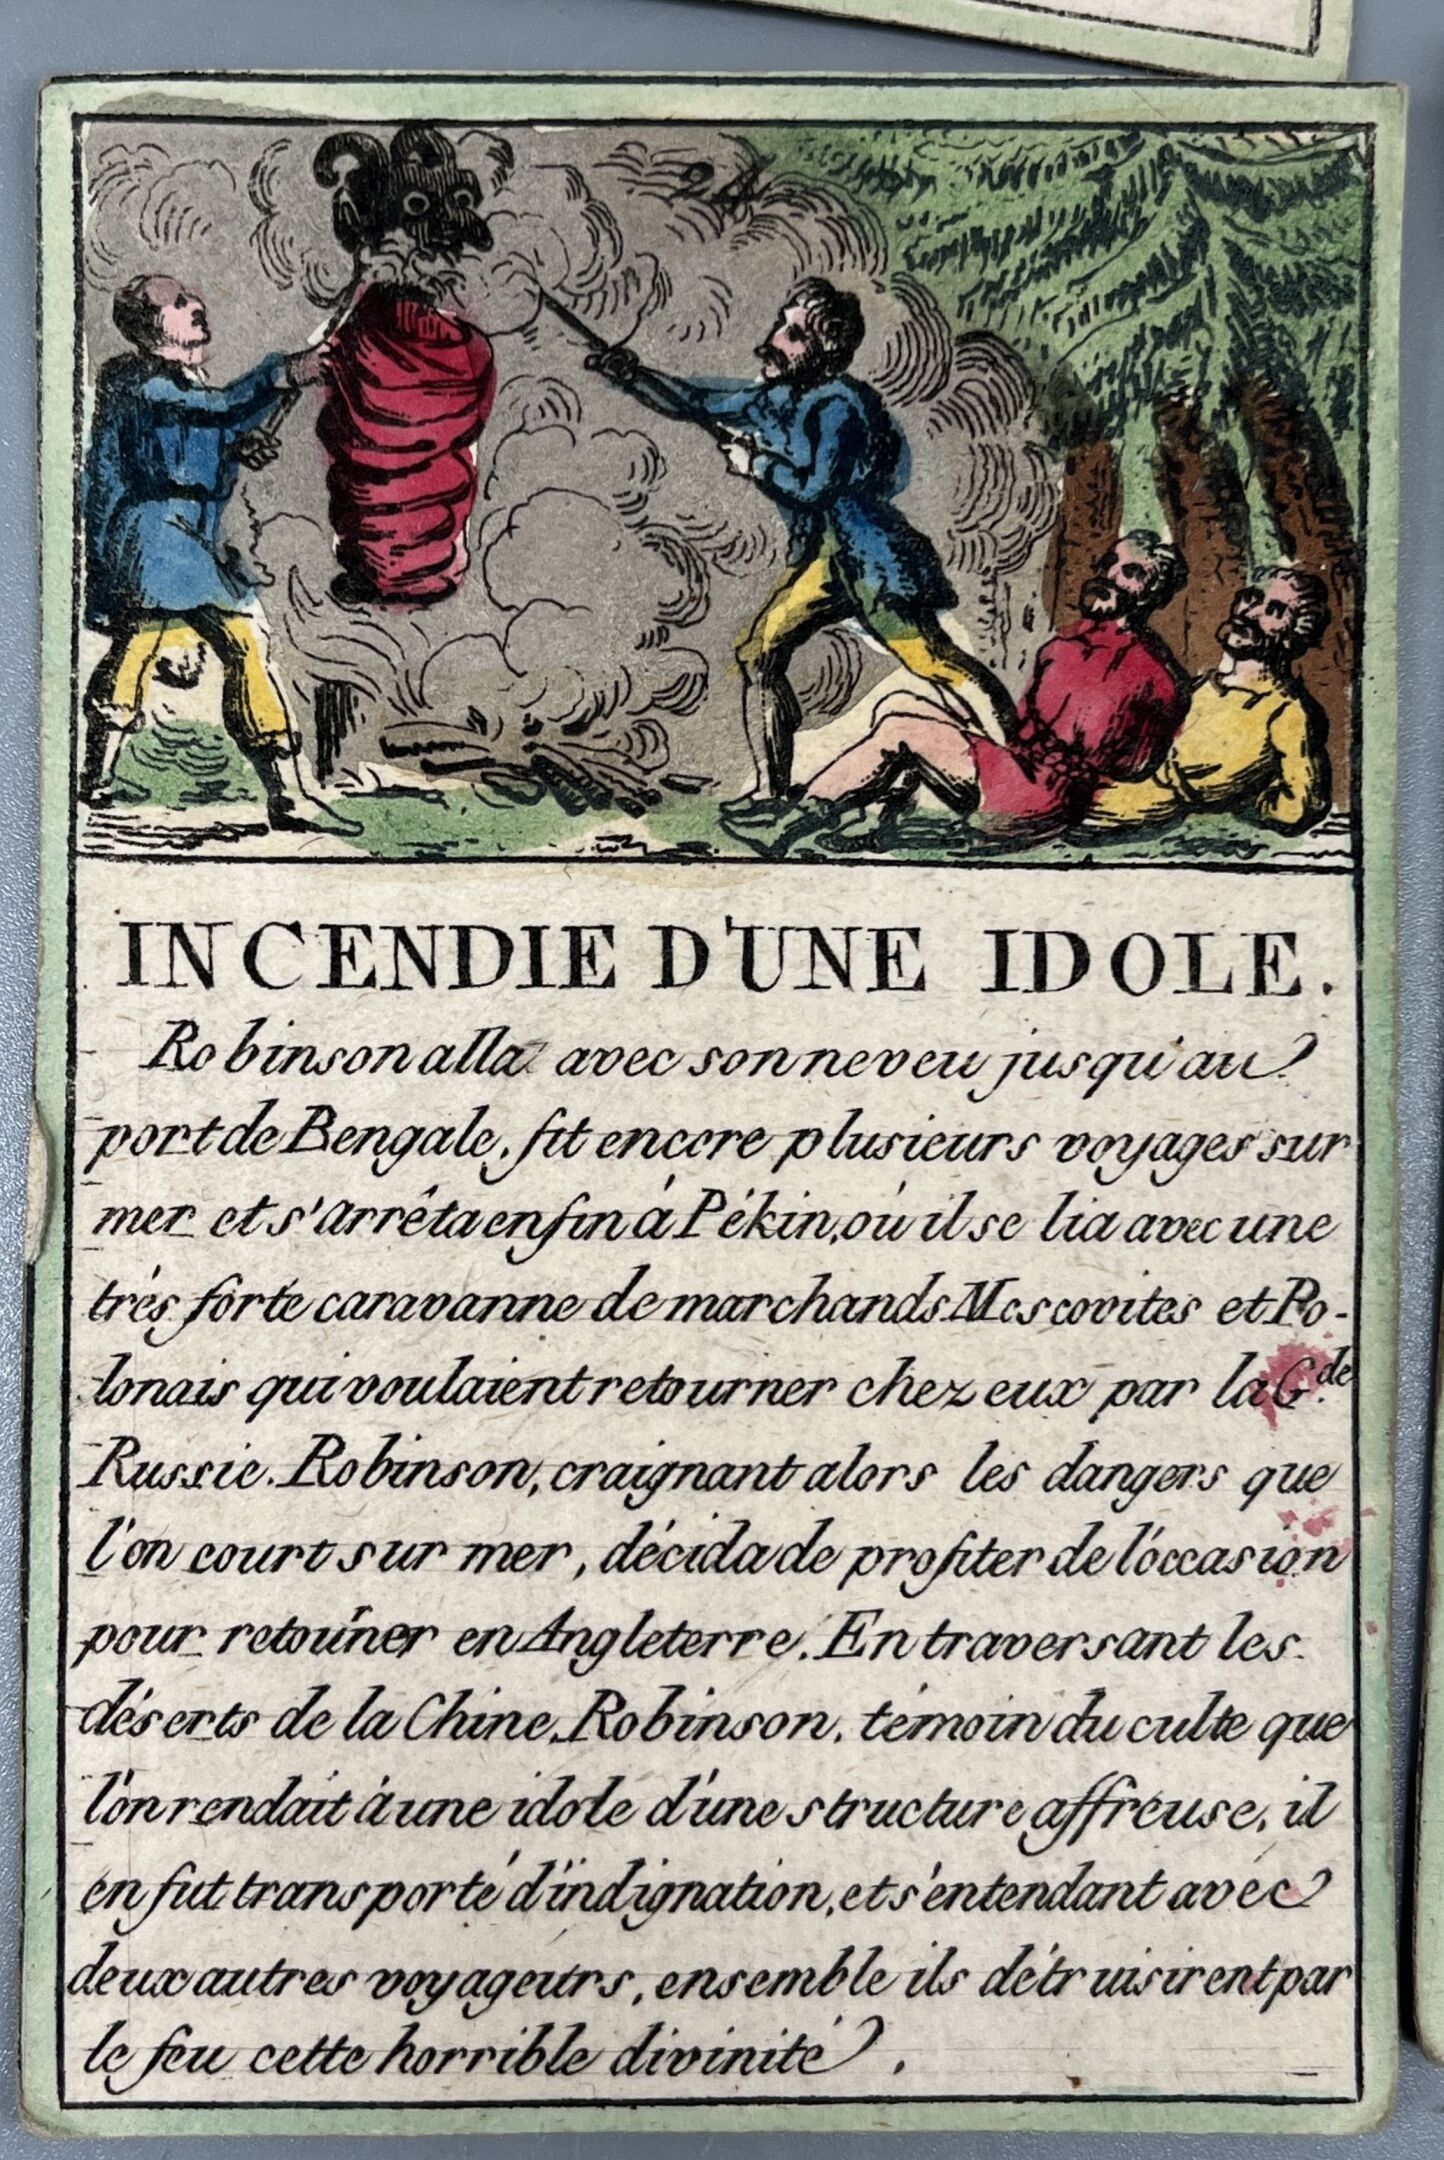 24
INCENDIE D'UNE IDOLE.
Robinson alla avec son neveu jusqu'au
port de Bengale, fit encore plusieurs voyages sur
mer et s'arrêta enfin à Pékin, où il se lia avec une
trés forte caravanne de marchands Moscovites et Po-
lonais qui voulaient retourner chez eux par la G.de
Russie. Robinson, craignant alors les dangers que
l'on court sur mer, décida de profiter de l'occasion
pour retouner en Angleterre. En traversant les
déserts de la Chine, Robinson, témoin du culte que
l'on rendait à une idole d'une structure affreuse, il
en fut transporté d'indignation, et s'entendant avec
deux autres voyageurs, ensemble ils détruisirent par
le feu cette horrible divinité.